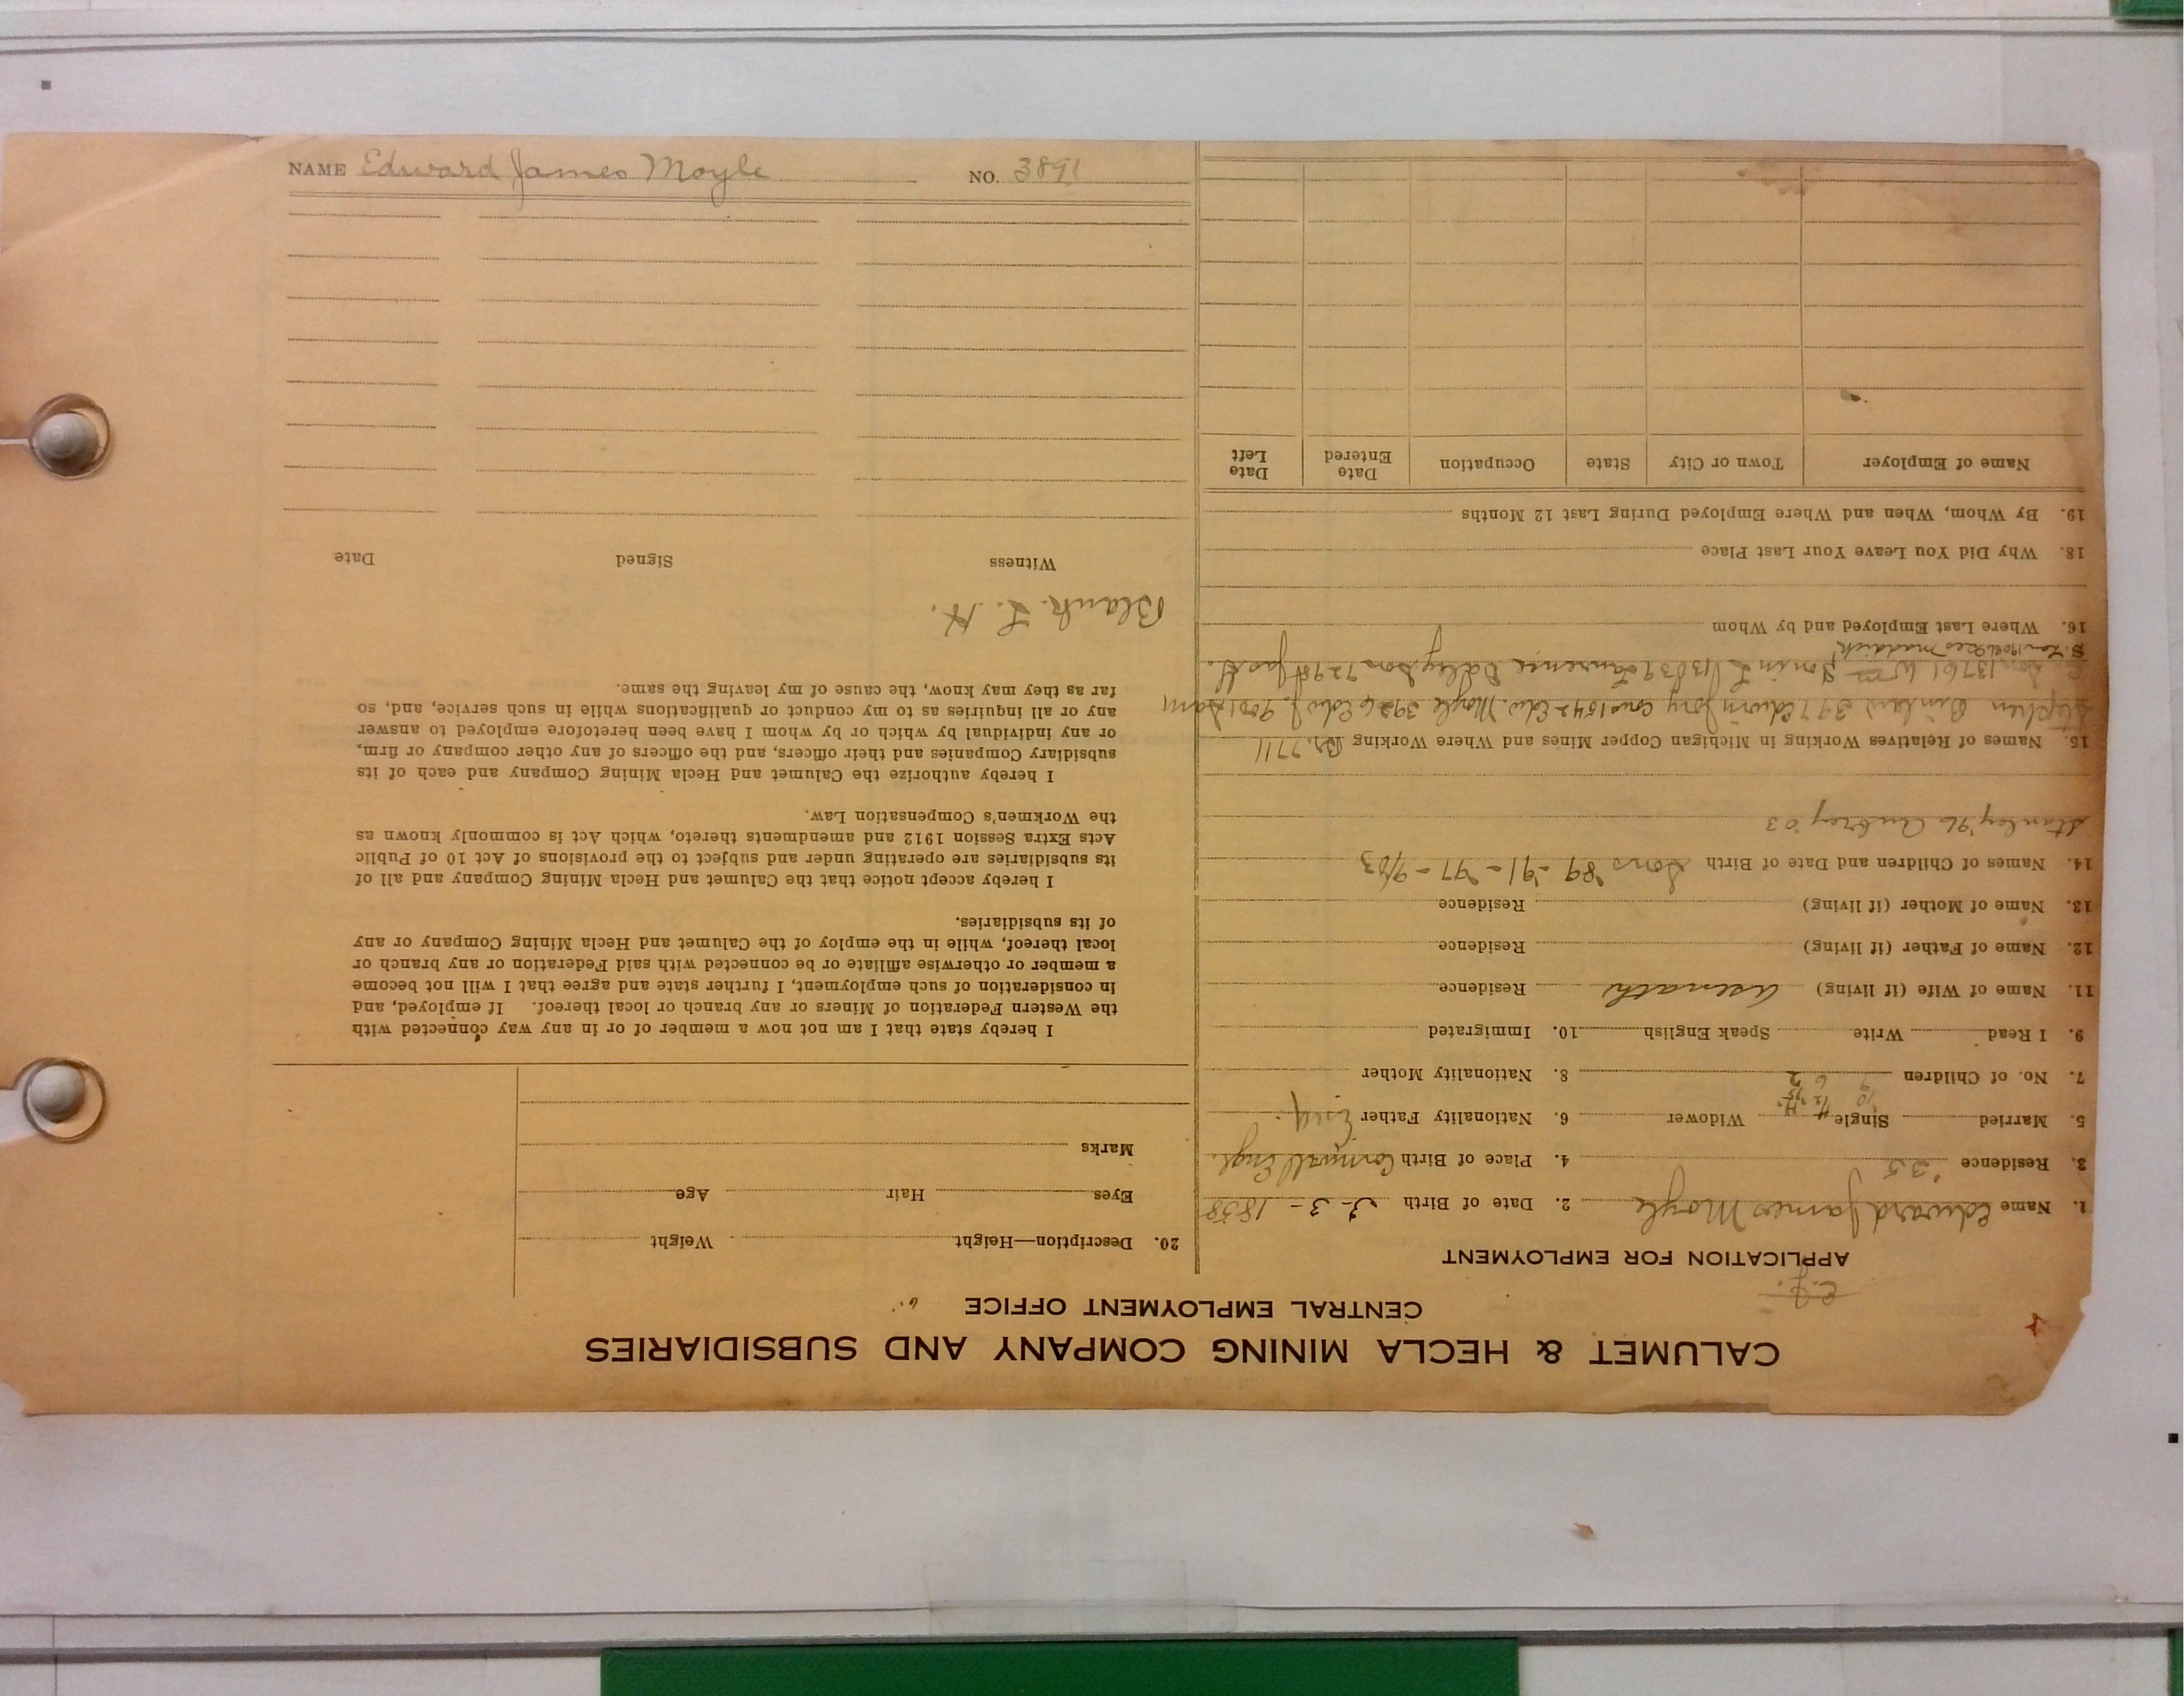 NAME Edward James Moyle NO. 3891
CALUMET & HECLA MINING COMPANY AND SUBSIDIARIES
CENTRAL EMPLOYMENT OFFICE
APPLICATION FOR EMPLOYMENT
1. Name Edward James Moyle 2. Date of Birth 3 - 1858
3. Residence 35 4. Place of Birth Cornwall Engl.
5. Married Single Widower 6. Nationality Father
7. No. of Children 8. Nationality Mother
9. I Read Write Speak English 10. Immigrated
11. Name of Wife (if living) Asenath Residence
12. Name of Father (if living) Residence
13. Name of Mother (if living) Residence
14. Names of Children and Date of Birth Sons '89 - '91 - '97 - 9/03
Stanley '96 Aubrey '03
15. Names of Relatives Working in Michigan Copper Mines and Where Working Br. 7711
Stephen 397 Edwin Jory 1542 Edw. Moyle 3926 Edw J. 9001 Sam
13761 Wm Son in L 13039 Laurence Daley Son 7298 Jack.
16. Where Last Employed and by Whom
18. Why Did You Leave Your Last Place
19. By Whom, When and Where Employed During Last 12 Months
Name of Employer Town or City State Occupation Date Entered Date Left
20. Description—Height Weight
Eyes Hair Age
Marks
I hereby state that I am not now a member of or in any way connected with
the Western Federation of Miners or any branch or local thereof. If employed, and
in consideration of such employment, I further state and agree that I will not become
a member or otherwise affiliate or be connected with said Federation or any branch or
local thereof, while in the employ of the Calumet and Hecla Mining Company or any
of its subsidiaries.
I hereby accept notice that the Calumet and Hecla Mining Company and all of
its subsidiaries are operating under and subject to the provisions of Act 10 of Public
Acts Extra Session 1912 and amendments thereto, which Act is commonly known as
the Workmen's Compensation Law.
I hereby authorize the Calumet and Hecla Mining Company and each of its
subsidiary Companies and their officers, and the officers of any other company or firm,
or any individual by which or by whom I have been heretofore employed to answer
any or all inquiries as to my conduct or qualifications while in such service, and, so
far as they may know, the cause of my leaving the same.
Blank. L. H.
Witness Signed Date